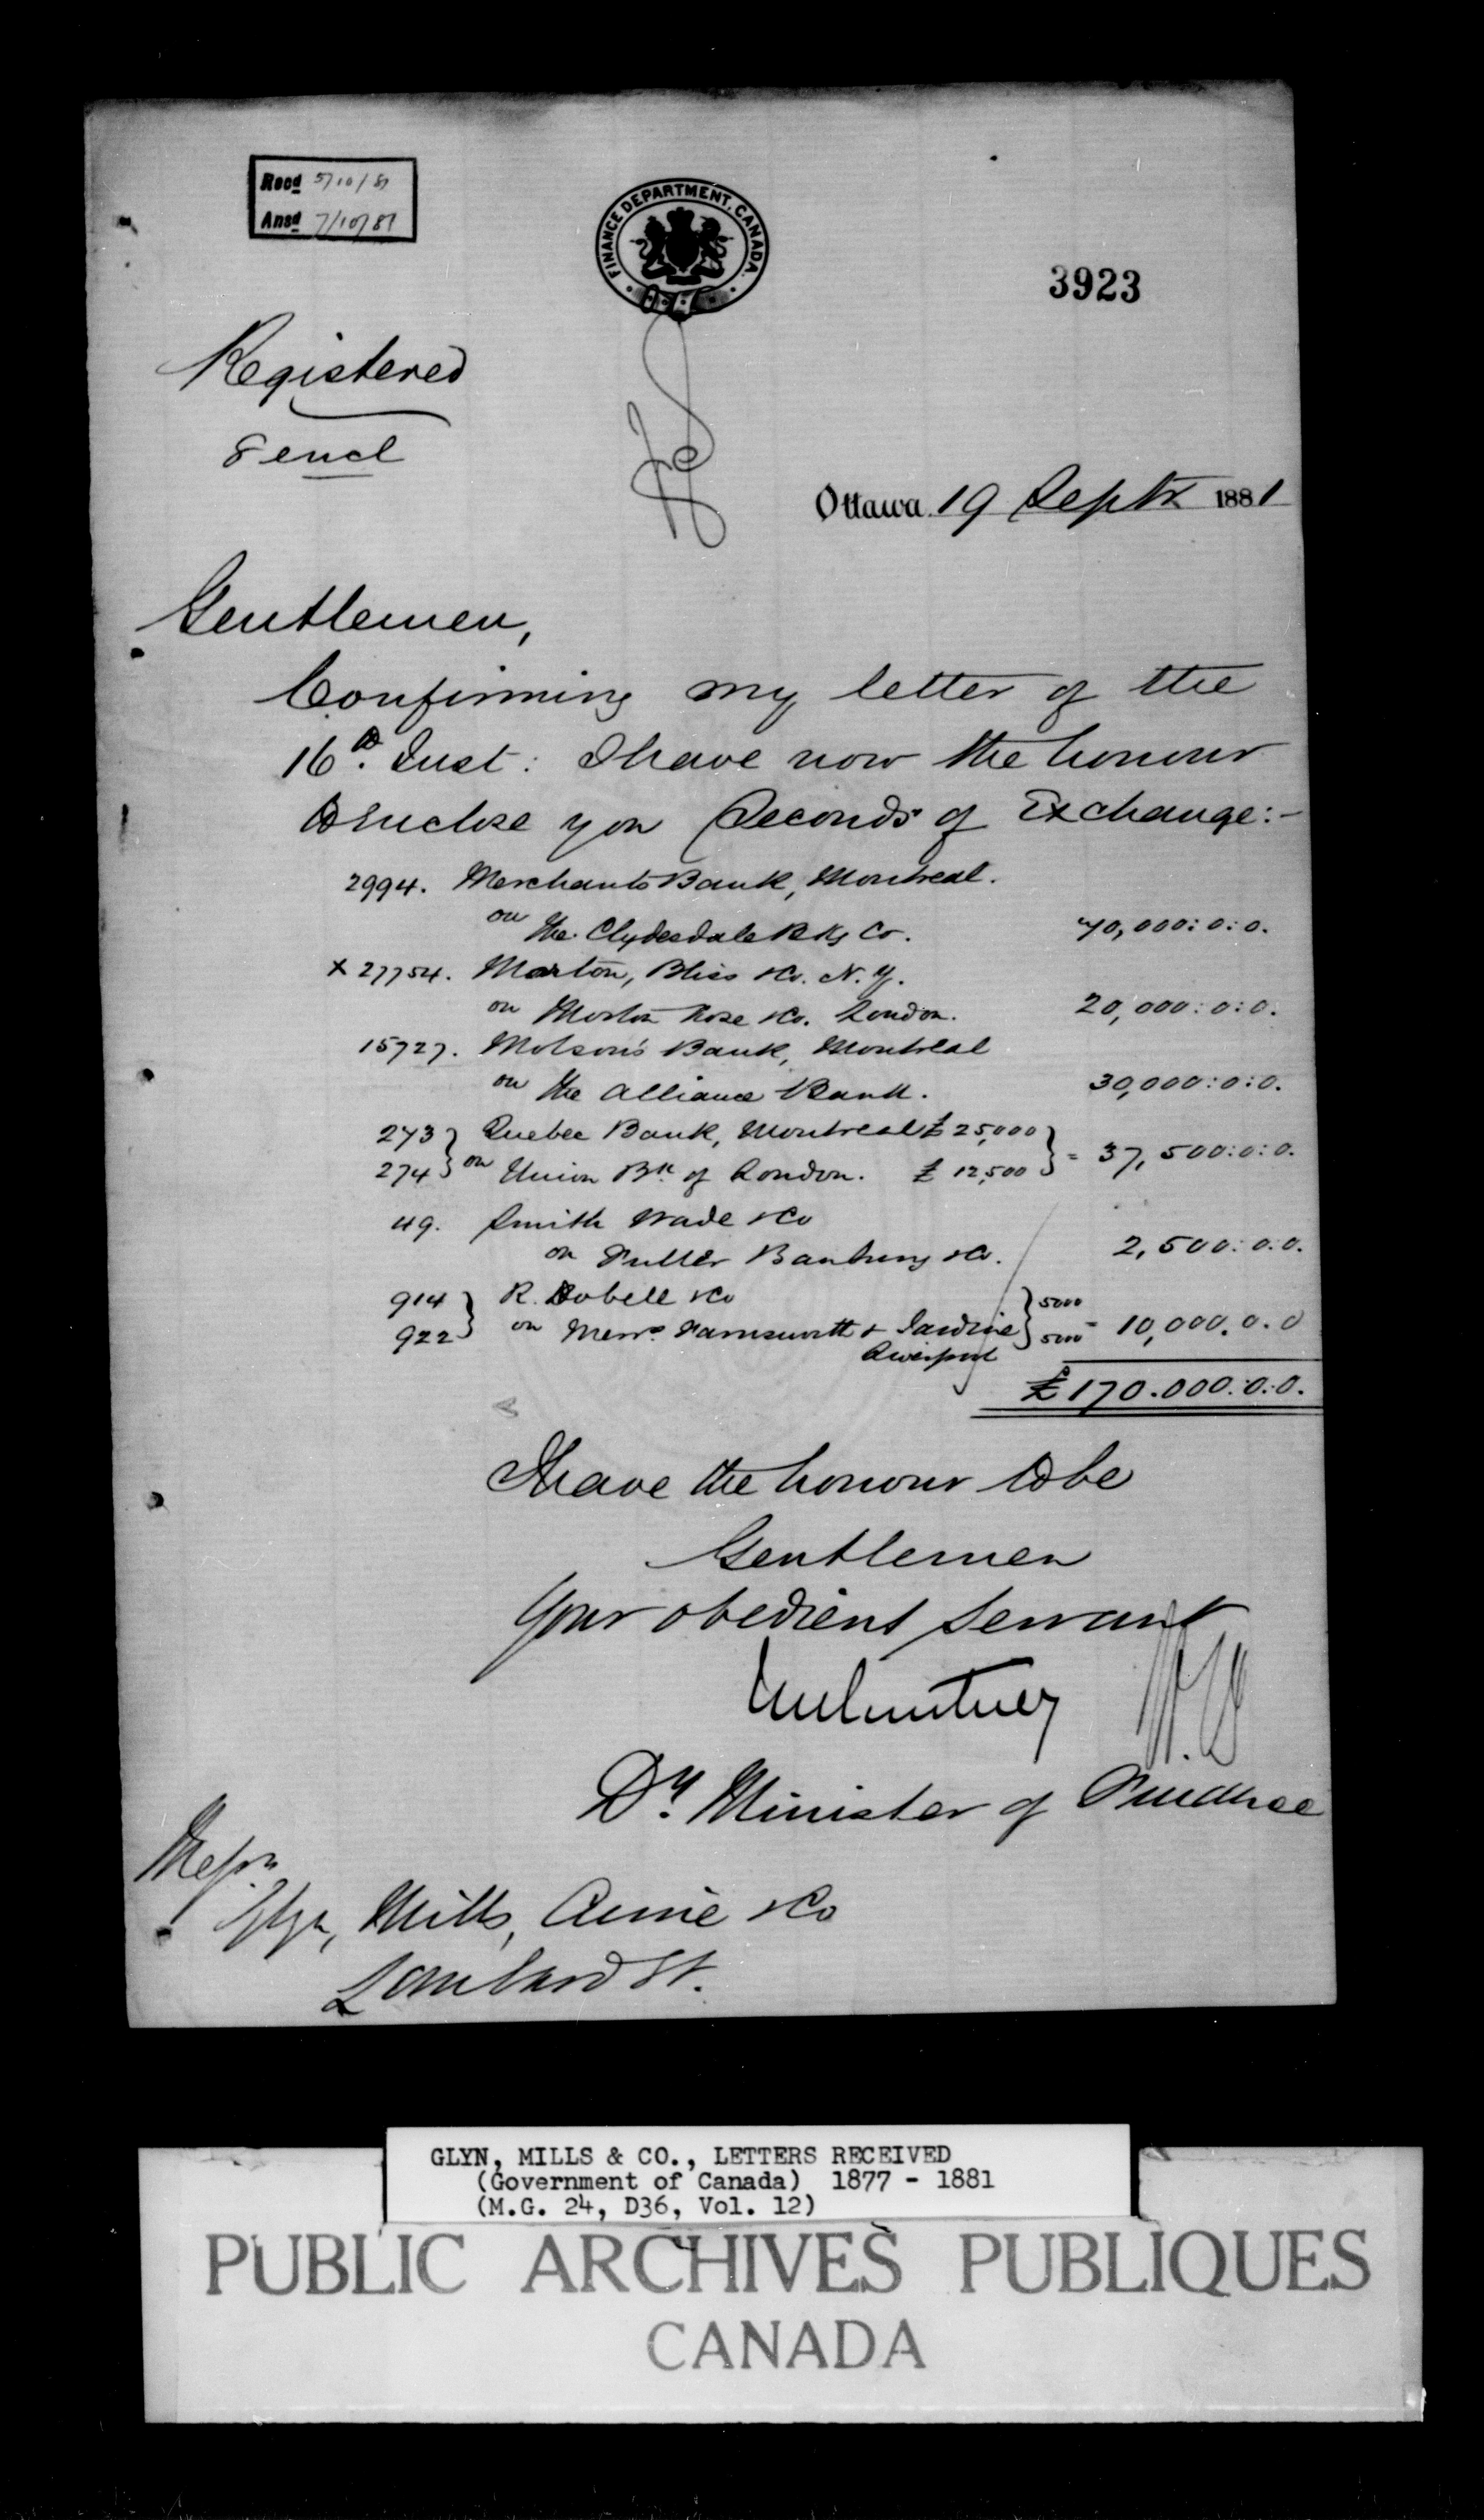 Recd 5/10/81
Ansd 7/10/81
FINANCE DEPARTMENT, CANADA.
3923
Registered
8 encl
Ottawa 19 Septr 1881
Gentlemen,
Confirming my letter of the
16th. Inst: I have now the honour
to enclose you Seconds of Exchange:-
2994. Merchants Bank, Montreal.
on The Clydesdale Bkg Co. 70,000:0:0.
x 27754. Morton, Bliss & Co. N.Y.
on Morton Rose & Co. London. 20,000:0:0.
15727. Molson's Bank, Montreal
on the Alliance Bank. 30,000:0:0.
273 } Quebec Bank, Montreal £25,000 }
274 } on Union Bk of London. £12,500 } = 37,500:0:0.
49. Smith Wade & Co
on Fuller Banbury & Co. 2,500:0:0.
914 } R. Dobell & Co } 5000
922 } on Messrs Farnworth & Jardine } 5000 = 10,000.0.0
Liverpool
£170.000:0:0.
I have the honour to be
Gentlemen
Your obedient servant
JMCourtney
Dy. Minister of Finance
Messrs
Glyn, Mills, Currie & Co
Lombard St.
GLYN, MILLS & CO., LETTERS RECEIVED
(Government of Canada) 1877 - 1881
(M.G. 24, D36, Vol. 12)
PUBLIC ARCHIVES PUBLIQUES
CANADA